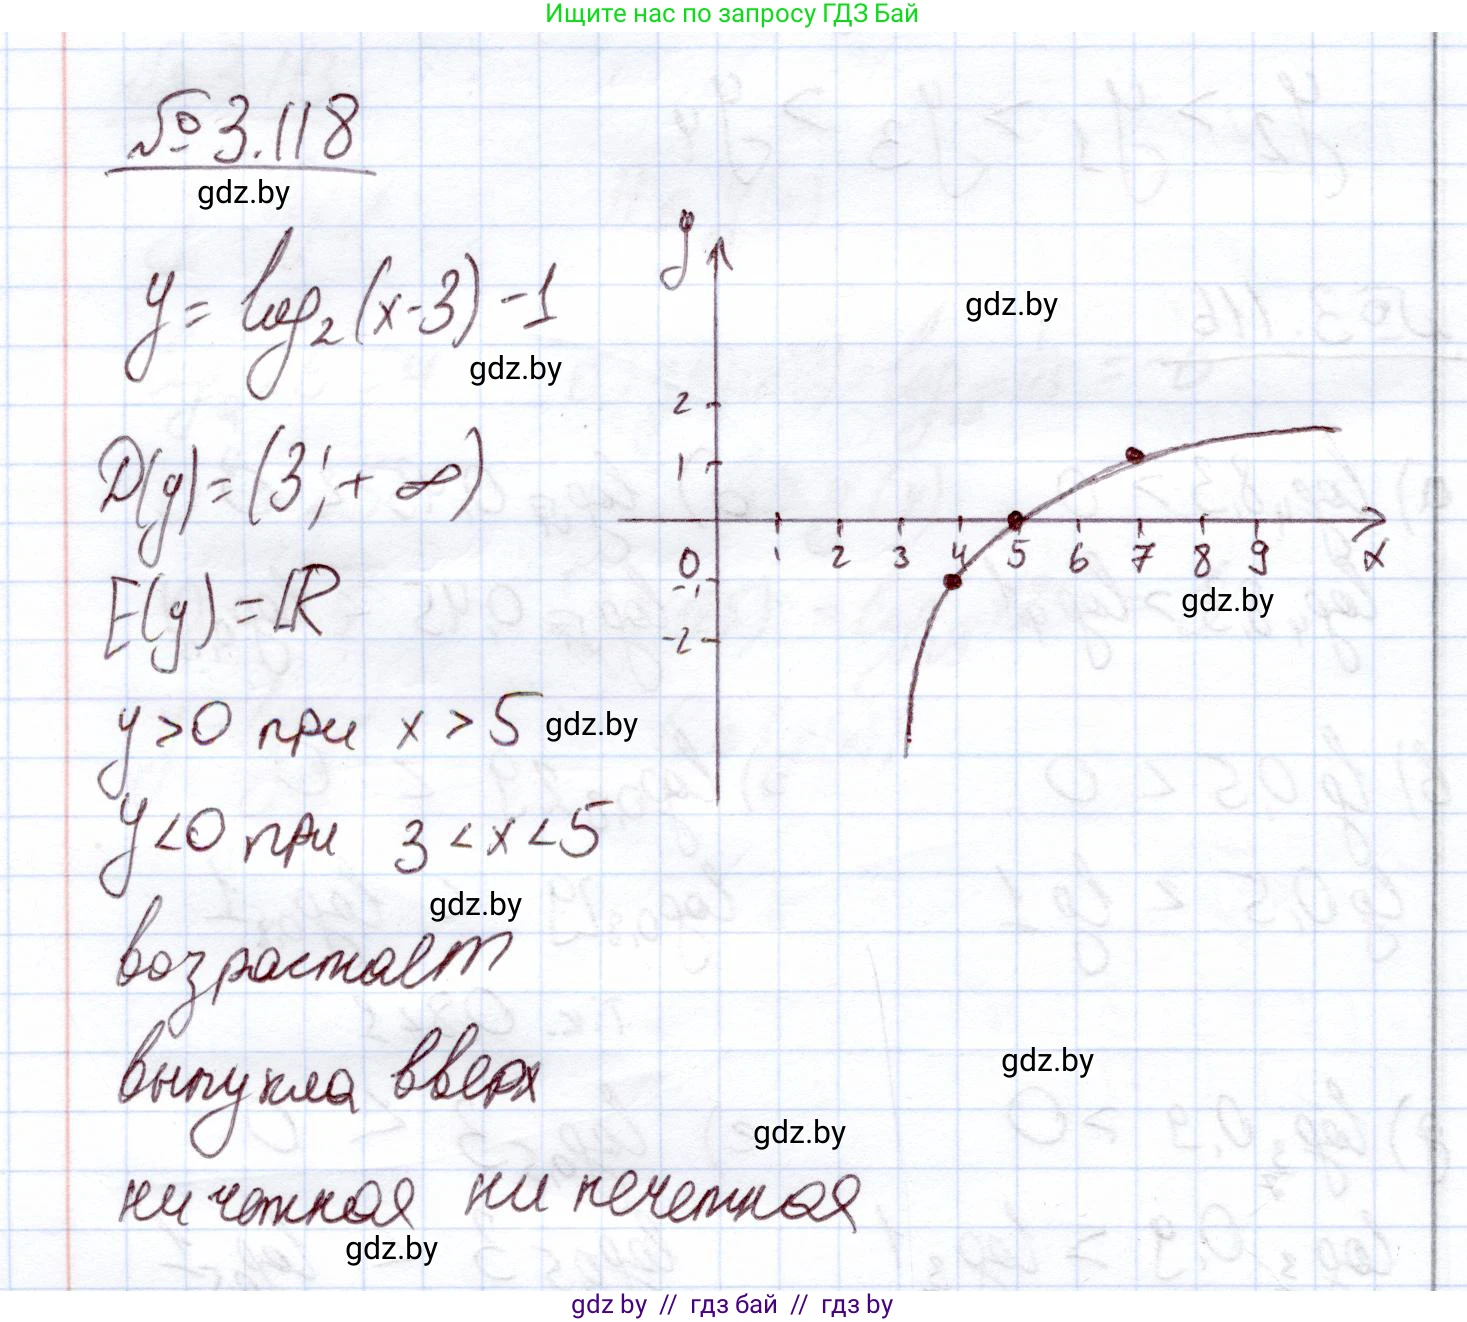 Ищите нас по запросу ГДЗ Бай
№3.118
gdz.by
y = log₂(x-3) -1
gdz.by
D(y) = (3; + ∞)
E(y) = R
y > 0 при x > 5
gdz.by
y < 0 при 3 < x < 5
gdz.by
возрастает
выпукла вверх
ни четная ни нечетная
gdz.by
y
gdz.by
2
1
0
1 2 3 4 5 6 7 8 9
x
-1
-2
gdz.by
gdz.by
gdz.by
gdz by // гдз бай // гдз by